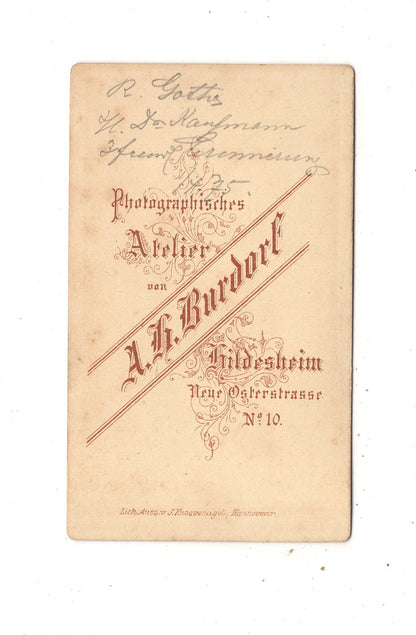 R. Gothe
s/l. Dr Kaufmann
z. freundl. Erinnerung
14.75.
Photographisches
Atelier
von
A. H. Burdorf
Hildesheim
Neue Osterstrasse
No 10.
Lith. Anst. v. J. Knoevenagel, Hannover.